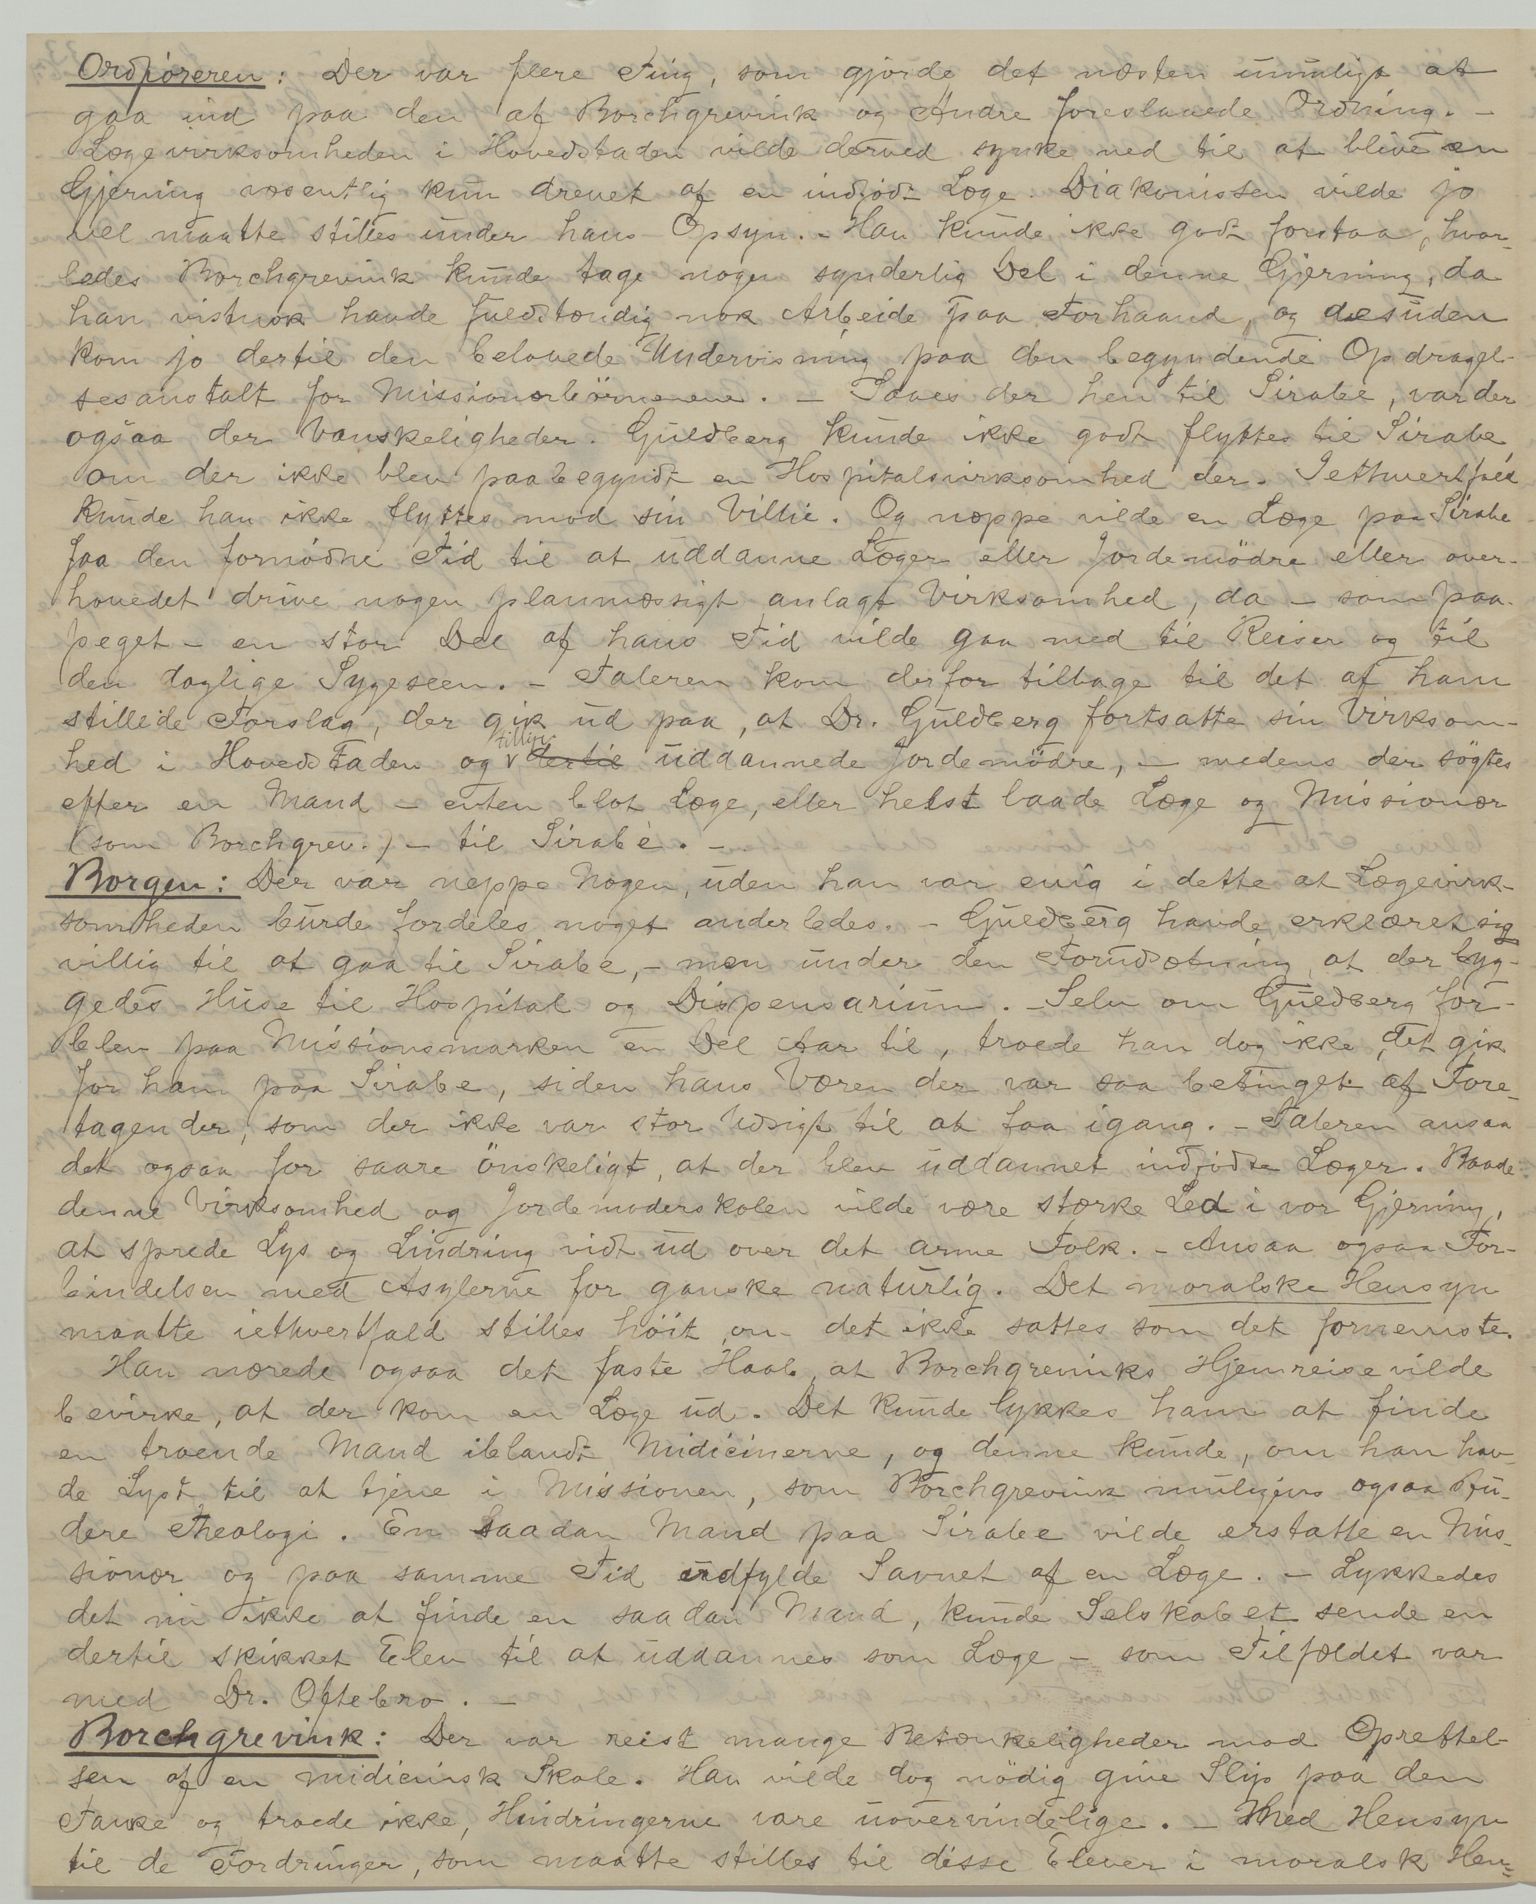 Ordføreren: Der var flere Ting, som gjorde det næsten umuligt at
gaa ind paa den af Borchgrevink og Andre foreslaaede Ordning. -
Lægevirksomheden i Hovedstaden vilde derved synke ned til at blive en
Gjerning væsentlig kun drevet af en indfødt Læge. Diakonissen vilde jo
vel maatte stilles under hans Opsyn. - Han kunde ikke godt forstaa, hvor-
ledes Borchgrevink kunde tage nogen synderlig Del i denne Gjerning, da
han vistnok havde fuldstændig nok Arbeide paa Forhaand, og desuden
kom jo dertil den belovede Undervisning paa den begyndende Opdragel-
sesanstalt for Missionærbørnene. - Saaes der hen til Sirabe, var der
ogsaa der Vanskeligheder. Guldberg kunde ikke godt flyttes til Sirabe
om der ikke blev paabegyndt en Hospitalsvirksomhed der. Iethvertfald
kunde han ikke flyttes mod sin Villie. Og neppe vilde en Læge paa Sirabe
faa den fornødne Tid til at uddanne Læger eller Jordemödre eller over-
hovedet drive nogen planmæssigt anlagt Virksomhed, da - som paa-
peget - en stor Del af hans Tid vilde gaa med til Reiser og til
den daglige Sygeseen. - Taleren kom derfor tilbage til det af ham
stillede Forslag, der gik ud paa, at Dr. Guldberg fortsatte sin Virksom-
hed i Hovedstaden og tillige dertil uddannede Jordemödre, - medens der søgtes
efter en Mand - enten blot Læge, eller helst baade Læge og Missionær
(som Borchgrev.) - til Sirabè. -
Borgen: Der var neppe Nogen, uden han var enig i dette at Lægevirk-
somheden burde fordeles noget anderledes. - Guldberg havde erklæret sig
villig til at gaa til Sirabe, - men under den Forudsætning, at der byg-
gedes Huse til Hospital og Dispensarium. - Selv om Guldberg for-
blev paa Missionsmarken en Del Aar til, troede han dog ikke, det gik
for ham paa Sirabe, siden hans Væren der var saa betinget af Fore-
tagender, som der ikke var stor Udsigt til at faa igang. - Taleren ansaa
det ogsaa for saare önskeligt, at der blev uddannet indfødte Læger. Baade
denne Virksomhed og Jordemoderskolen vilde være stærke Led i vor Gjerning,
at sprede Lys og Lindring vidt ud over det arme Folk. - Ansaa ogsaa For-
bindelsen med Asylerne for ganske naturlig. Det moralske Hensyn
maatte iethvertfald stilles høit, om det ikke sattes som det fornemste.
Han nærede ogsaa det faste Haab, at Borchgrevinks Hjemreise vilde
bevirke, at der kom en Læge ud. Det kunde lykkes ham at finde
en troende Mand iblandt Midicinerne, og denne kunde, om han hav-
de Lyst til at tjene i Missionen, som Borchgrevink muligens ogsaa stu-
dere Theologi. En saadan Mand paa Sirabe vilde erstatte en Mis-
sionær og paa samme Tid udfylde Savnet af en Læge. - Lykkedes
det nu ikke at finde en saadan Mand, kunde Selskabet sende en
dertil skikket Elev til at uddannes som Læge - som Tilfældet var
med Dr. Oftebro. -
Borchgrevink: Der var reist mange Betænkeligheder mod Oprettel-
sen af en midicinsk Skole. Han vilde dog nödig give Slip paa den
Tanke og troede ikke, Hindringerne vare uovervindelige. - Med Hensyn
til de Fordringer, som maatte stilles til disse Elever i moralsk Hen-